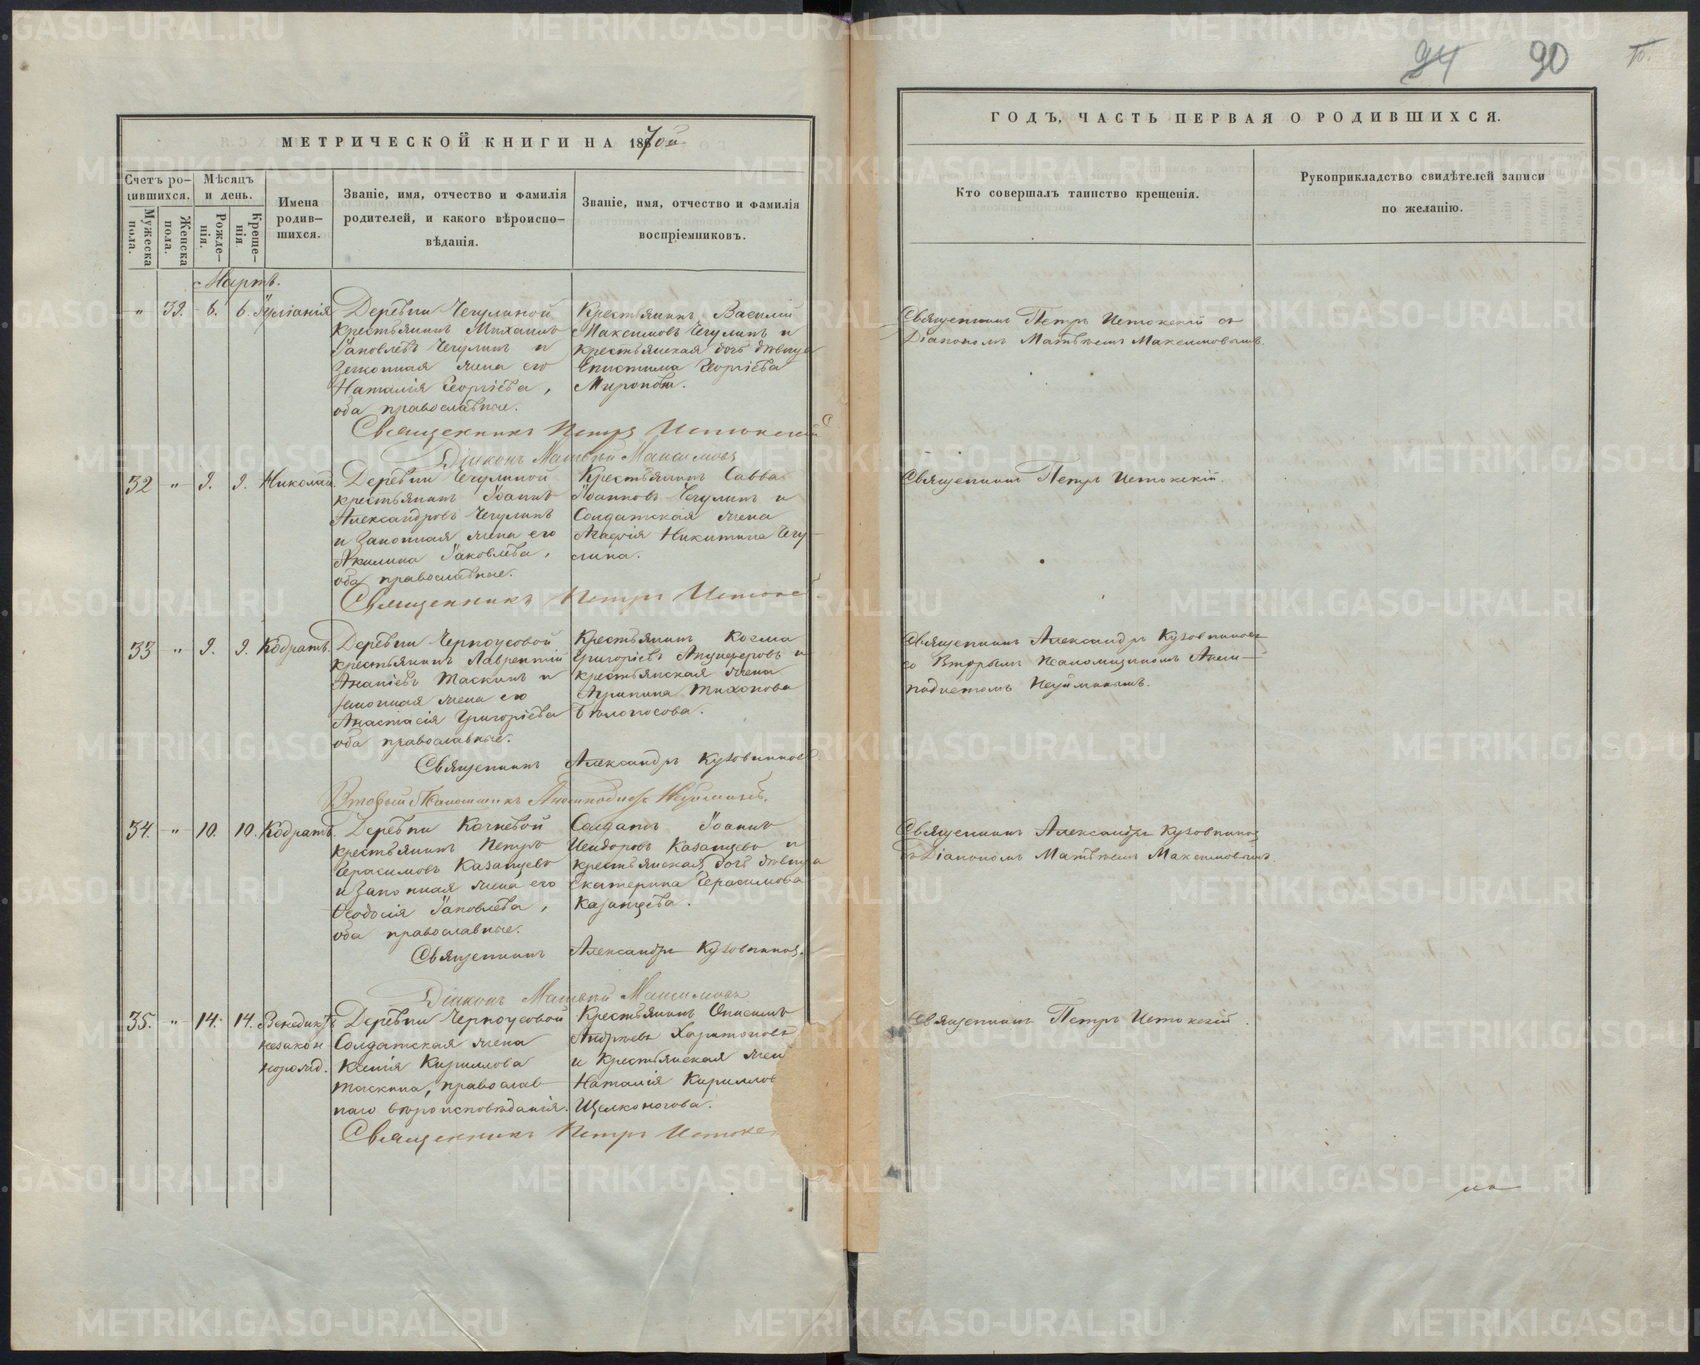 94 90
МЕТРИЧЕСКОЙ КНИГИ НА 1870й
ГОДЪ, ЧАСТЬ ПЕРВАЯ О РОДИВШИХСЯ.
Счетъ родившихся.
Мужеска пола.
Женска пола.
Мѣсяцъ и день.
Рожденія.
Крещенія
Имена родившихся.
Званіе, имя, отчество и фамилія
родителей, и какого вѣроиспо-
вѣданія.
Званіе, имя, отчество и фамилія
воспріемниковъ.
Кто совершалъ таинство крещенія.
Рукоприкладство свидѣтелей записи
по желанію.
Мартъ.
" 39. 6. 6. Іуліанія
Деревни Чечулиной
крестьянинъ Михаилъ
Іаковлевъ Чечулинъ и
законная жена его
Наталія Георгіева,
оба православные.
Крестьянинъ Василій
Максимовъ Чечулинъ и
крестьянская дочь девица
Епистима Георгіева
Миронова.
Священникъ Петръ Истокскій съ
Діакономъ Матвѣемъ Максимовымъ.
Священникъ Петръ Истокскій
Діаконъ Матвей Максимовъ
32 " 9. 9. Николай
Деревни Чечулиной
крестьянинъ Іоаннъ
Александровъ Чечулинъ
и законная жена его
Акилина Іаковлева,
оба православные.
Крестьянинъ Савва
Іоанновъ Чечулинъ и
Солдатская жена
Агафія Никитина Чечу-
лина.
Священникъ Петръ Истокскій.
Священникъ Петръ Истокс
33 " 9. 9. Кодратъ.
Деревни Черноусовой
крестьянинъ Лаврентій
Ананіевъ Таскинъ и
законная жена его
Анастасія Григоріева
оба православные.
Крестьянинъ Козма
Григоріевъ Анциферовъ и
крестьянская жена
Агрипина Тихонова
Бѣлоносова.
Священникъ Александръ Кузовниковъ
со Вторымъ Псаломщикомъ Анем-
подистомъ Неуйминымъ.
Священникъ Александръ Кузовниковъ
Вторый Псаломщикъ Анемподистъ Неуйминъ.
34. " 10. 10. Кодратъ.
Деревни Кочневой
крестьянинъ Петръ
Герасимовъ Казанцевъ
и законная жена его
Ѳеодосія Іаковлева,
оба православные.
Солдатъ Іоаннъ
Исидоровъ Казанцевъ и
крестьянская дочь девица
Екатерина Герасимова
Казанцева.
Священникъ Александръ Кузовниковъ
съ Діакономъ Матвѣемъ Максимовымъ.
Священникъ Александръ Кузовниковъ.
Діаконъ Матвей Максимовъ
35. " 14. 14. Венедиктъ
незакон
норожд.
Деревни Черноусовой
Солдатская жена
Ксенія Кириллова
Таскина, православ-
наго вѣроисповѣданія.
Крестьянинъ Онисимъ
Андреевъ Харитоновъ
и крестьянская жен
Наталія Кириллов
Щелконогова.
Священникъ Петръ Истокскій.
Священникъ Петръ Истокс